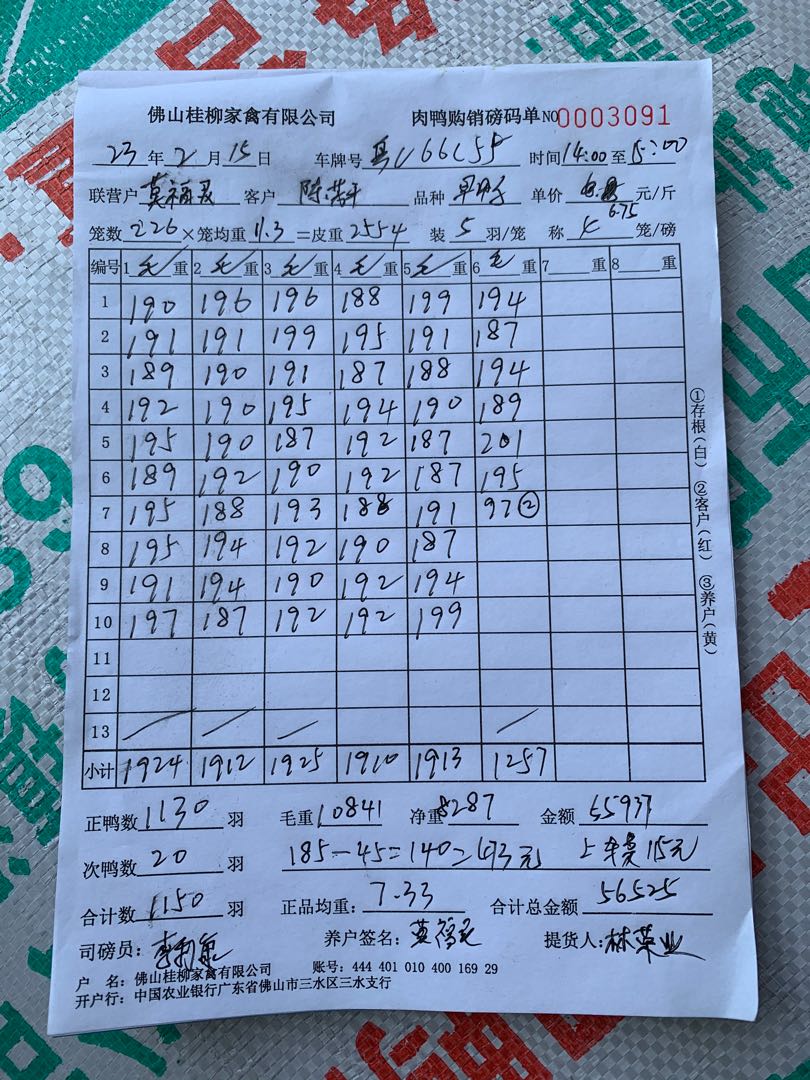 佛山桂柳家禽有限公司 肉鸭购销磅码单 NO 0003091
23 年 2 月 15 日 车牌号 粤 66C55 时间 14:00 至 15:00
联营户 莫福 客户 陈 品种 单价 6.75 元/斤
笼数 226 ×笼均重 11.3 =皮重 2554 装 5 羽/笼 称 4 笼/磅
编号 1 毛 重 2 毛 重 3 毛 重 4 毛 重 5 毛 重 6 毛 重 7 重 8 重
1 190 196 196 188 199 194
2 191 191 199 195 191 187
3 189 190 191 187 188 194
4 192 190 195 194 190 189
5 195 190 187 192 187 201
6 189 192 190 192 187 195
7 195 188 193 188 191 97②
8 195 194 192 190 187
9 191 194 190 192 194
10 197 187 192 192 199
11
12
13
小计 1924 1912 1925 1910 1913 1257
正鸭数 1130 羽 毛重 10841 净重 8287 金额 55937
次鸭数 20 羽 185-45=140=693元 上车费115元
合计数 1150 羽 正品均重: 7.33 合计总金额 56525
司磅员: 李 养户签名: 莫 提货人: 林荣业
户 名: 佛山桂柳家禽有限公司 账号: 444 401 010 400 169 29
开户行: 中国农业银行广东省佛山市三水区三水支行
①存根(白) ②客户(红) ③养户(黄)